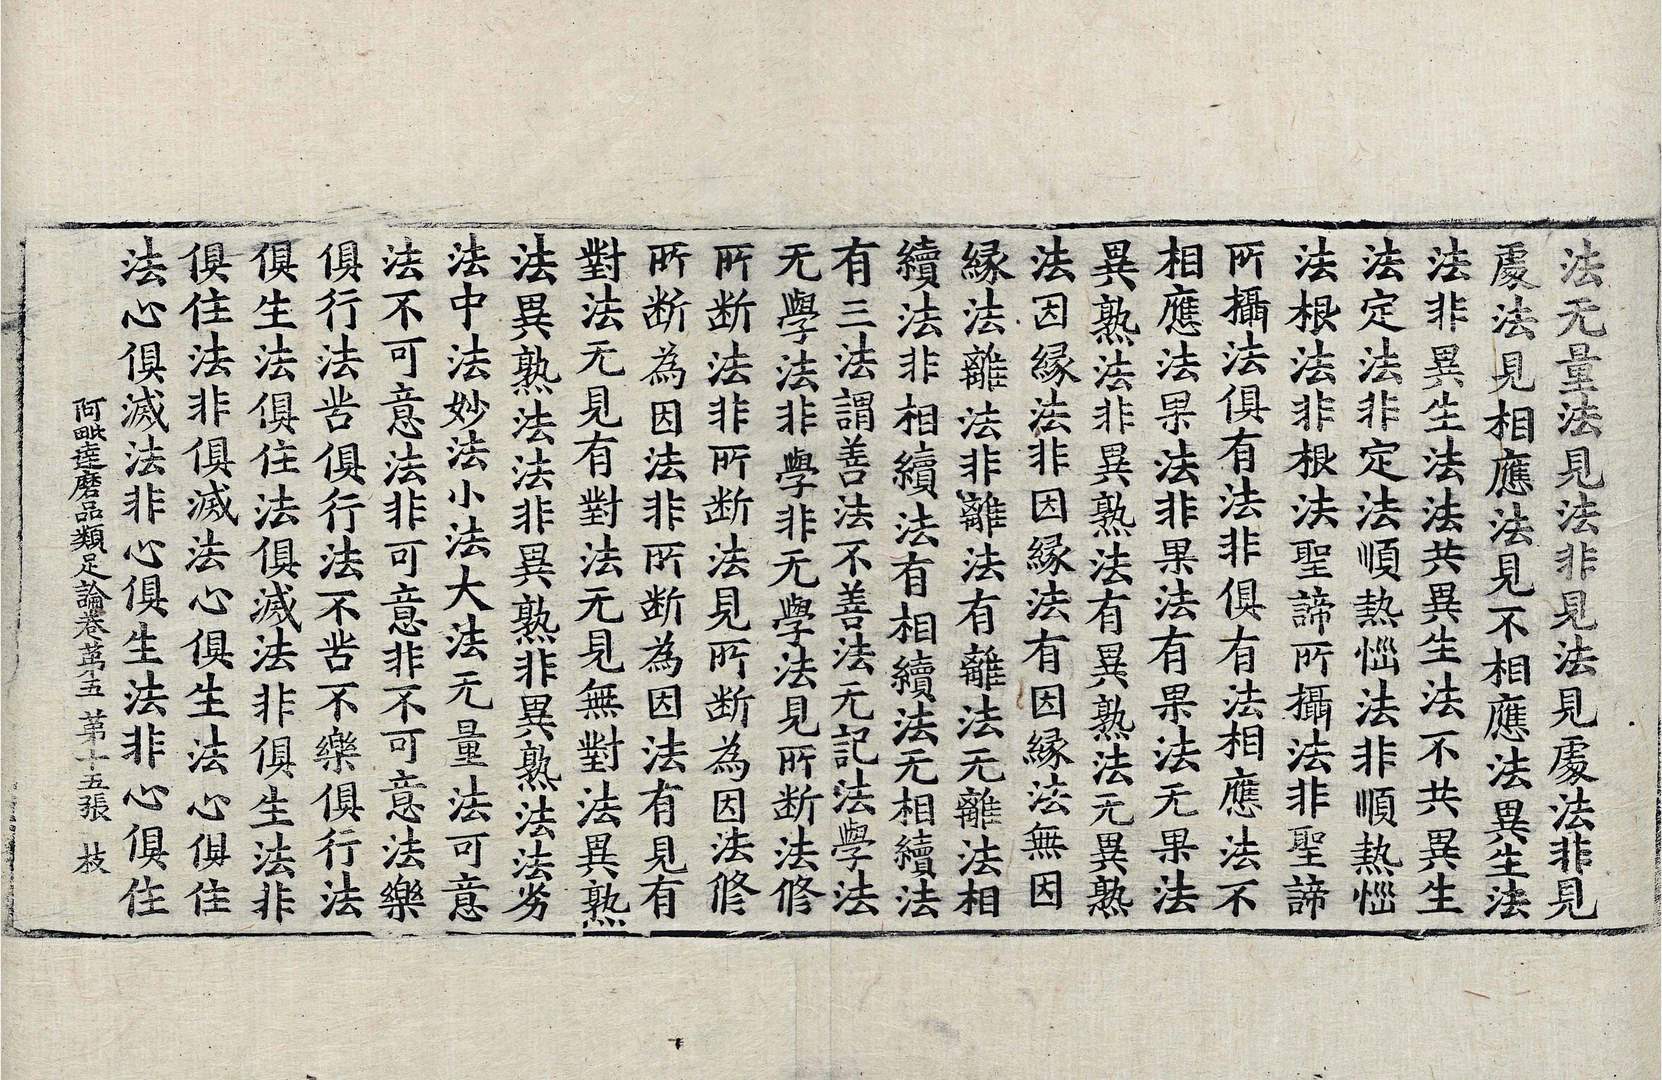 法无量法見法非見法見處法非見
處法見相應法見不相應法異生法
法非異生法法共異生法不共異生
法定法非定法順熱惱法非順熱惱
法根法非根法聖諦所攝法非聖諦
所攝法俱有法非俱有法相應法不
相應法果法非果法有果法无果法
異熟法非異熟法有異熟法无異熟
法因縁法非因縁法有因縁法無因
縁法離法非離法有離法无離法相
續法非相續法有相續法无相續法
有三法謂善法不善法无記法學法
无學法非學非无學法見所断法修
所断法非所断法見所断為因法修
所断為因法非所断為因法有見有
對法无見有對法无見無對法異熟
法異熟法法非異熟非異熟法法劣
法中法妙法小法大法无量法可意
法不可意法非可意非不可意法樂
俱行法苦俱行法不苦不樂俱行法
俱生法俱住法俱滅法非俱生法非
俱住法非俱滅法心俱生法心俱住
法心俱滅法非心俱生法非心俱住
阿毗達磨品類足論卷苐五 苐十五張 枝